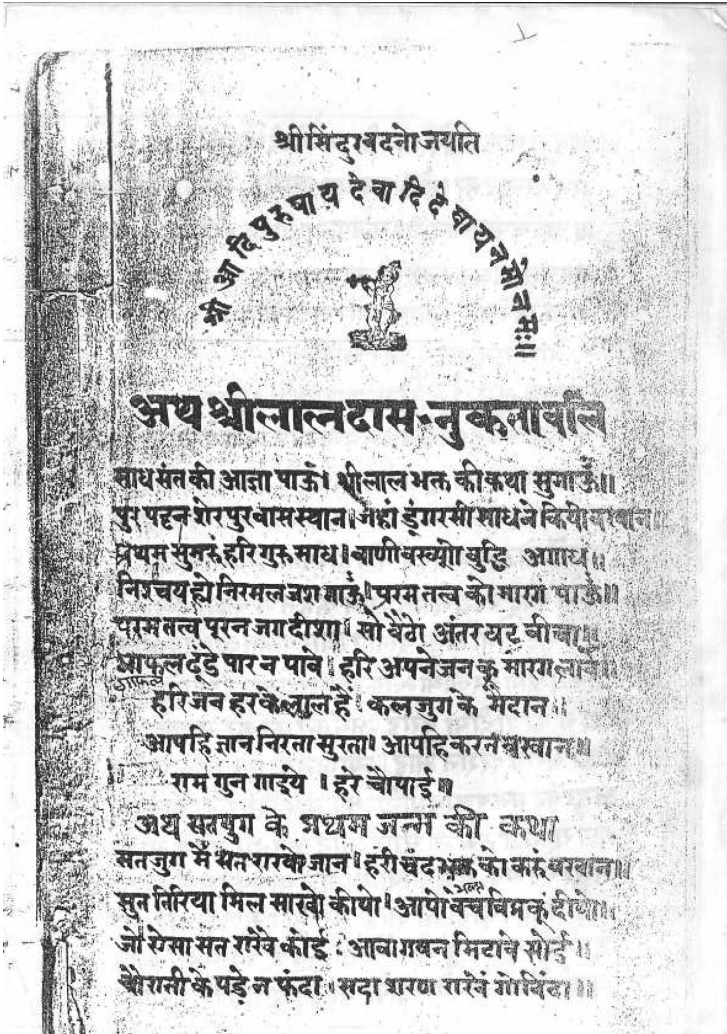 श्रीसिंदुरबदनोजयति
श्री आदिपुरुषाय देवादिदेवाय नमोनमः॥
अथ श्रीलालदास-नुकतावलि
साधसंतकी आज्ञा पाऊँ। श्रीलाल भक्त की कथा सुनाऊँ॥
पुर पट्टन शेरपुरवास स्थान। जहां डूंगरसी साधने कियो बखान॥
प्रथम सुमरुं हरि गुरु साध। बाणी बख्शो बुद्धि अगाध॥
निश्चय हो निरमल जश गाऊँ। परम तत्व को मारग पाऊँ॥
परमतत्व पूरन जगदीशा। सो बैठो अंतर घट बीचा॥
ढूंडे पार न पावे। हरि अपने जन कु मारग लावे॥
हरिजन हरके लाल हैं। कलजुग के मैदान॥
आपहि ज्ञान निरता सुरता। आपहि करत बखान॥
राम गुन गाईये । हरे चौपाई॥
अथ सतयुग के प्रथम जन्म की कथा
सतजुग में सत राखो जान। हरीचंद भक्त को करुं बखान॥
सुत तिरिया मिल साखो कीयो। आपो बेच विप्र कूं दीयो॥
जो ऐसा सत राखे कोई। आवागवन मिटावे सोई॥
चौरासी के पड़े न फंदा। सदा शरण राखें गोविंदा॥